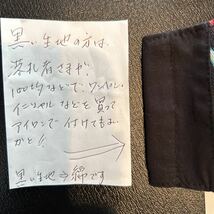 黒い生地の方は、
落札者さまが、
100均などで、ワッペン、
イニシャルなどを買って
アイロンで付けてもよい
かと!!
黒い生地⇒綿です